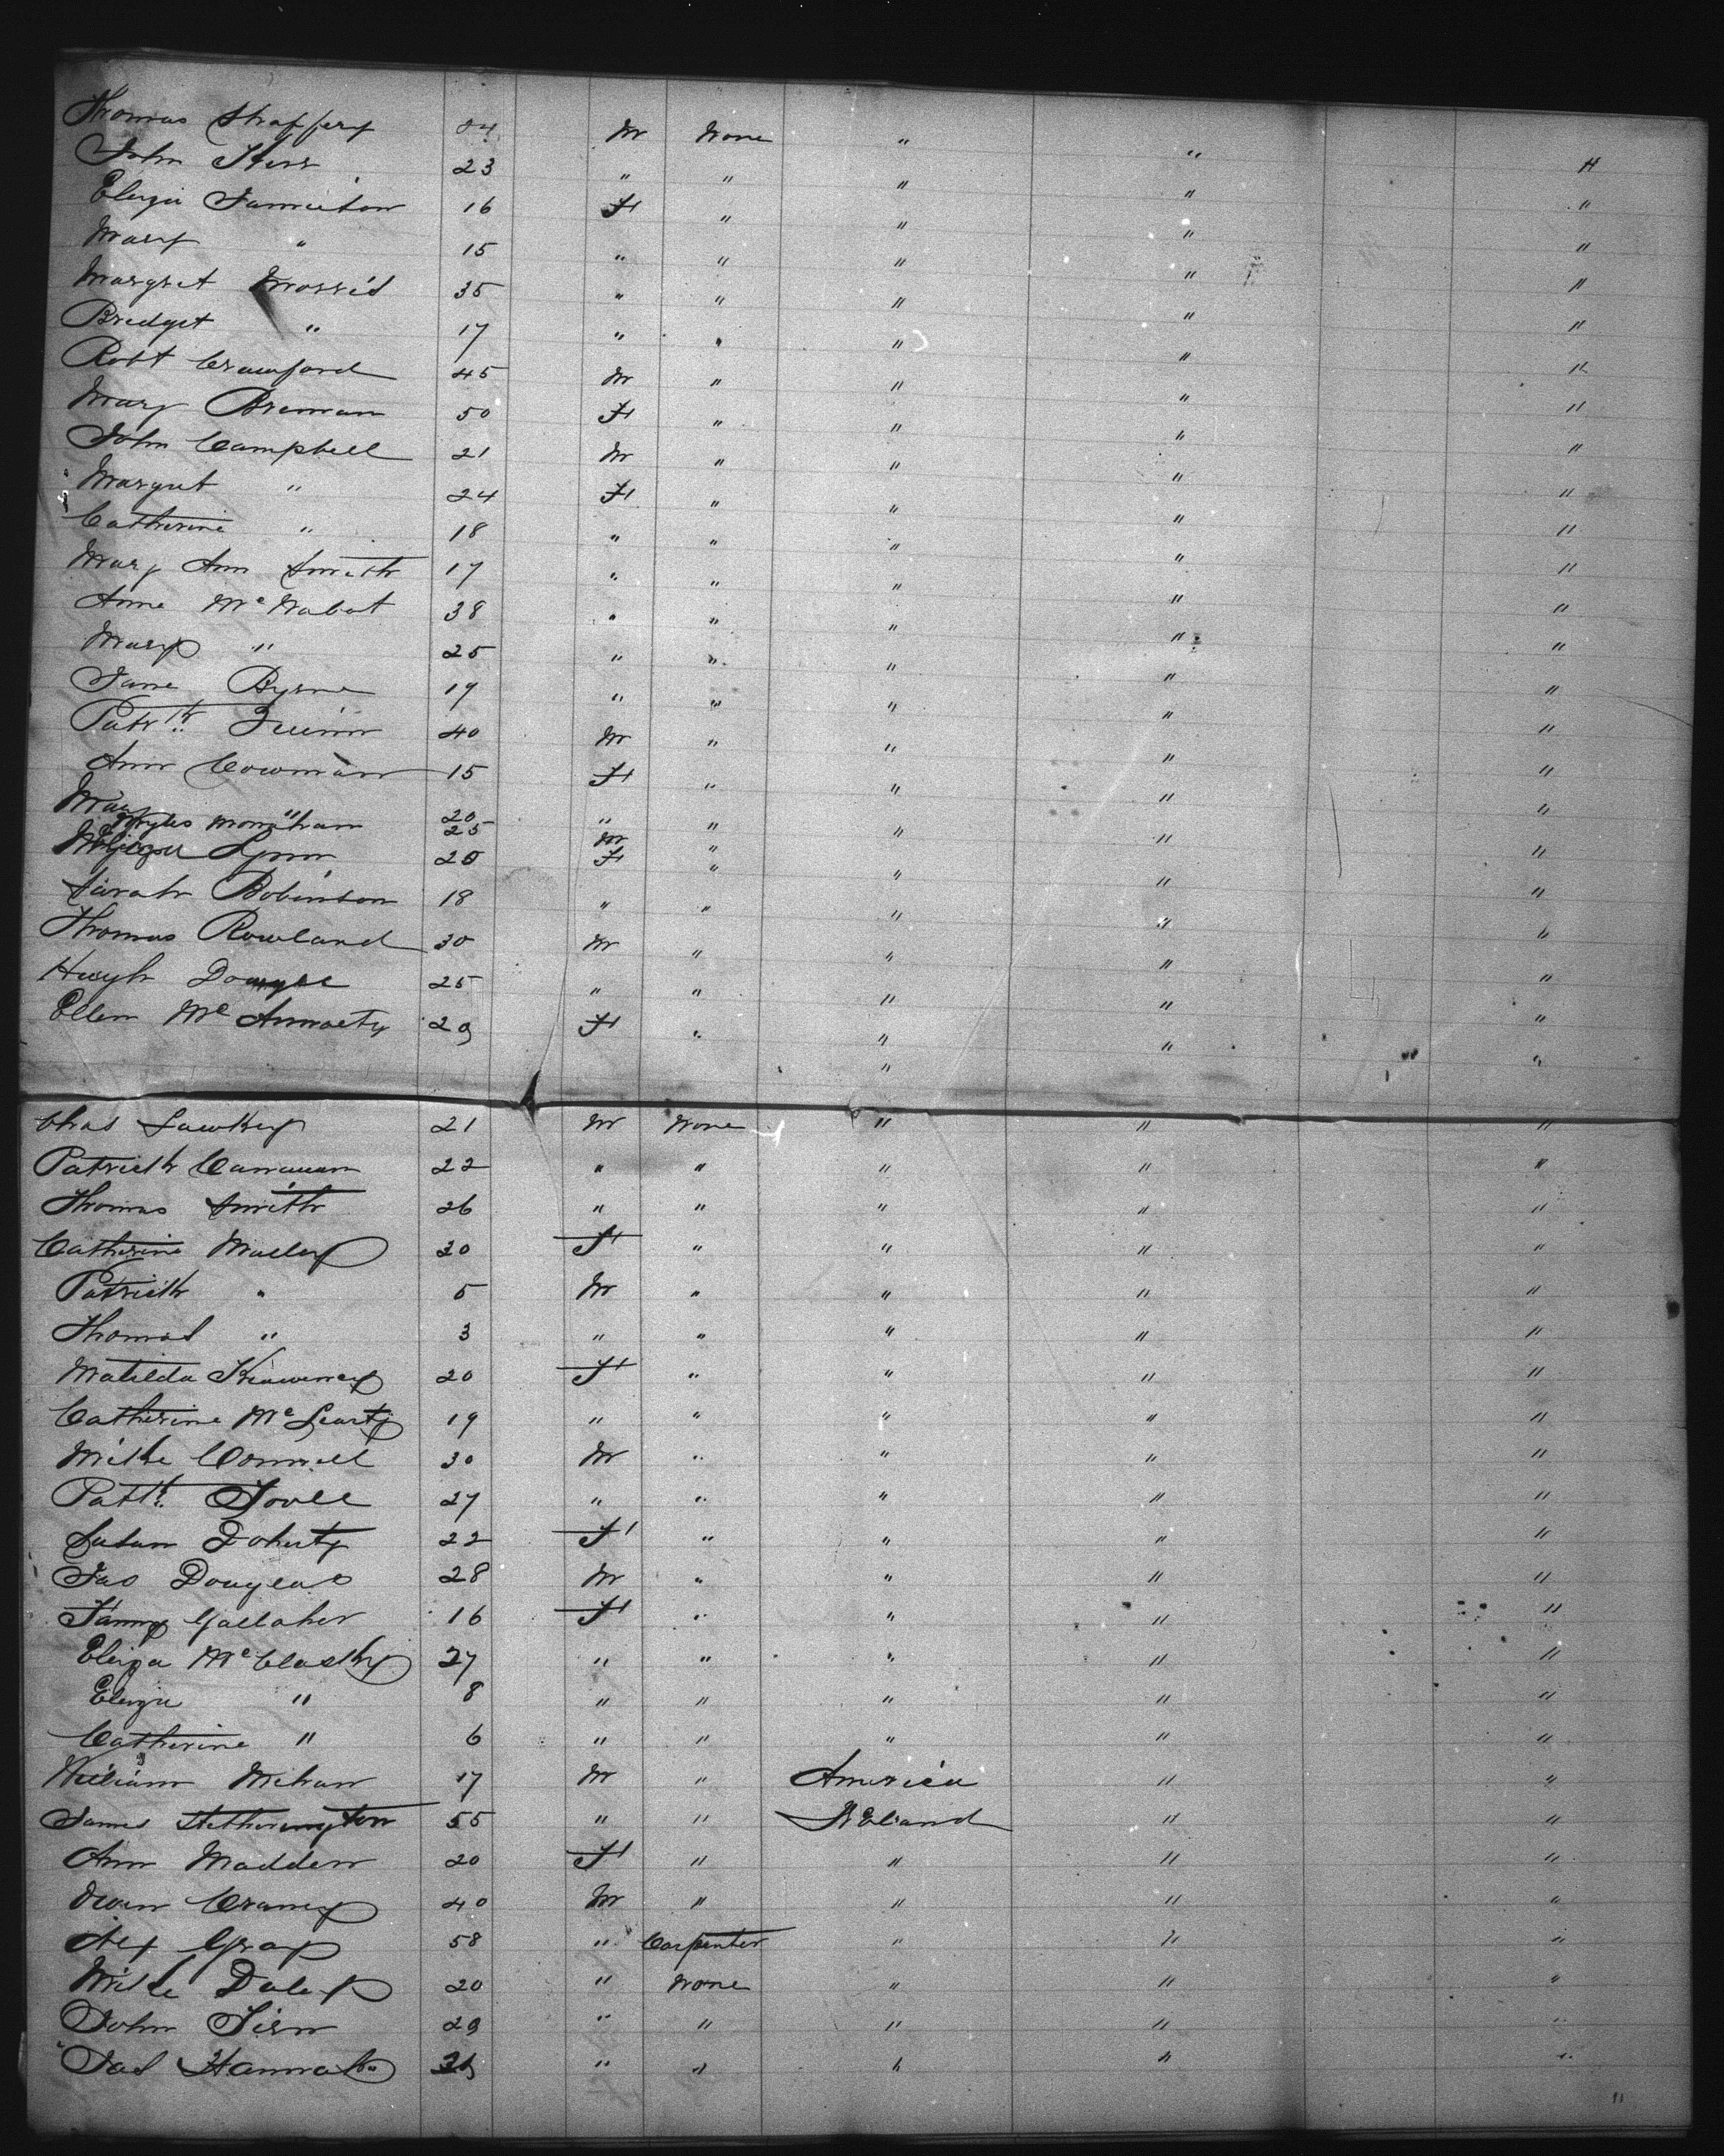 Thomas Shaffery 24 M None " " "
John Kerr 23 " " " " "
Eliza Jamieton 16 F " " " "
Mary " 15 " " " " "
Margret Morris 35 " " " " "
Bridget " 17 " " " " "
Robt Crawford 45 M " " " "
Mary Brennan 50 F " " " "
John Campbell 21 M " " " "
Margret " 24 F " " " "
Catherine " 18 " " " " "
Mary Ann Smith 17 " " " " "
Anne Mc Nabat 38 " " " " "
Mary " 25 " " " " "
Jane Byrne 19 " " " " "
Patrk Quinn 40 M " " " "
Ann Cowman 15 F " " " "
Mary " 20 " " " " "
Myles 25 M "
Lynn 20 F " " " "
Sarah Robinson 18 " " " " "
Thomas Rowland 30 M " " " "
Hugh 25 " " " " "
Ellen Mc 29 F " " " "
Chas 21 M None " " "
Patrick 22 " " " " "
Thomas Smith 26 " " " " "
Catherine 20 F " " " "
Patrick " 5 M " " " "
Thomas " 3 " " " " "
Matilda 20 F " " " "
Catherine Mc 19 " " " " "
Mike Connell 30 M " " " "
Patk 27 " " " " "
Susan Doherty 22 F " " " "
Jas Douglas 28 M " " " "
Fanny Gallaher 16 F " " " "
Eliza Mc Closky 27 " " " " "
Eliza " 8 " " " " "
Catherine " 6 " " " " "
William Mehan 17 M " America " "
James Hetherington 55 " " Ireland " "
Ann Madden 20 F " " " "
Owen Craney 40 M " " " "
Alex Gray 58 " Carpenter " " "
Mike Daley 20 " None " " "
John 29 " " " " "
Jas Hannah " " " " "
"